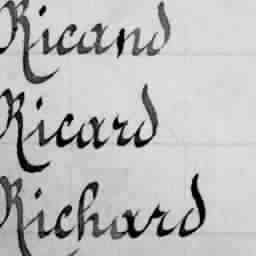 Ricand
Ricard
Richard